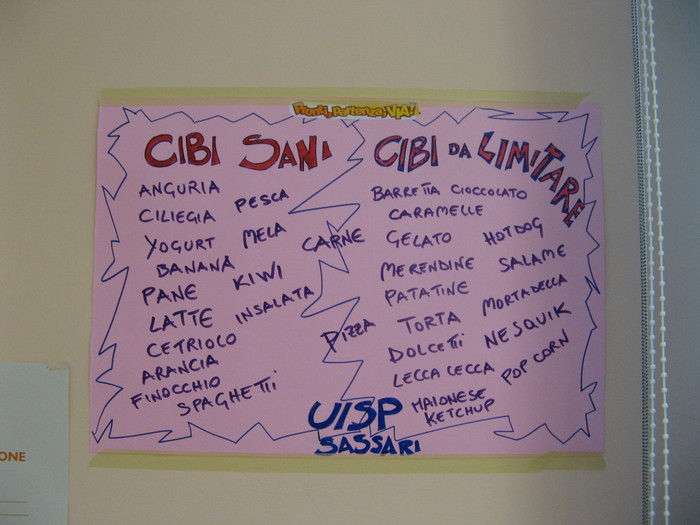 Pronti, Partenza, VIA!
CIBI SANI
ANGURIA
CILIEGIA PESCA
YOGURT MELA
BANANA
PANE KIWI
LATTE INSALATA
CETRIOLO
ARANCIA
FINOCCHIO
SPAGHETTI
CARNE
PIZZA
CIBI DA LIMITARE
BARRETTA CIOCCOLATO
CARAMELLE
GELATO HOTDOG
MERENDINE SALAME
PATATINE
TORTA MORTADELLA
DOLCETTI NESQUIK
LECCA LECCA POP CORN
MAIONESE
KETCHUP
UISP
SASSARI
ONE